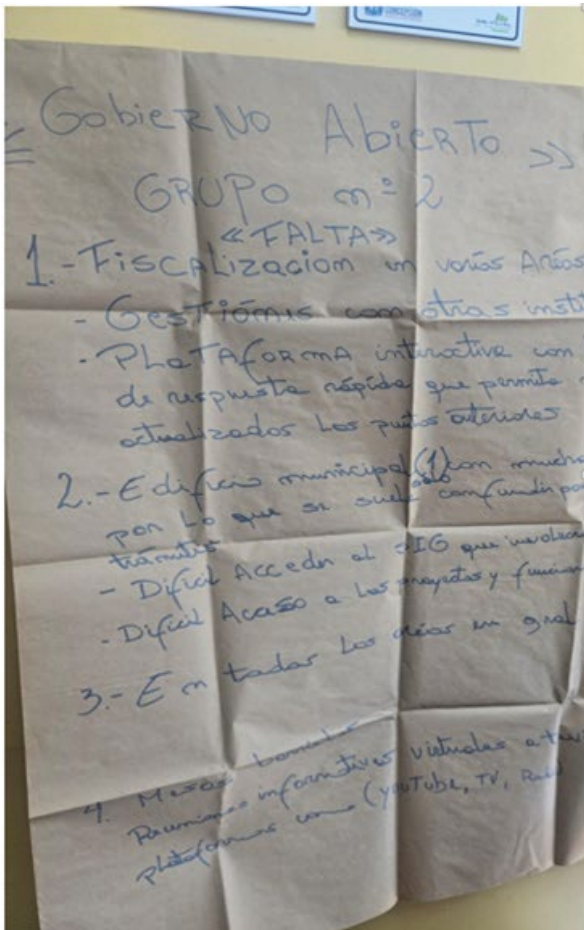 CONCEPCIÓN
<< Gobierno Abierto >>
GRUPO nº 2
<<FALTA>>
1.- Fiscalizacion en varias Areas
- Gestiones con otras inst
- Plataforma interactiva con
de respuesta rápida que permita
actualizados Los puntos anteriores
2.- Edificio municipal (1) con mucho
solo
por Lo que se suele confundir
trámites
- Dificil Acceder al SIG que involucra
- Dificil Acceso a Los proyectos y funcion
3.- En todas Las áreas en gral
4. Mesas barriales
Reuniones informativas virtuales a
plataformas como (youTube, TV, Rad